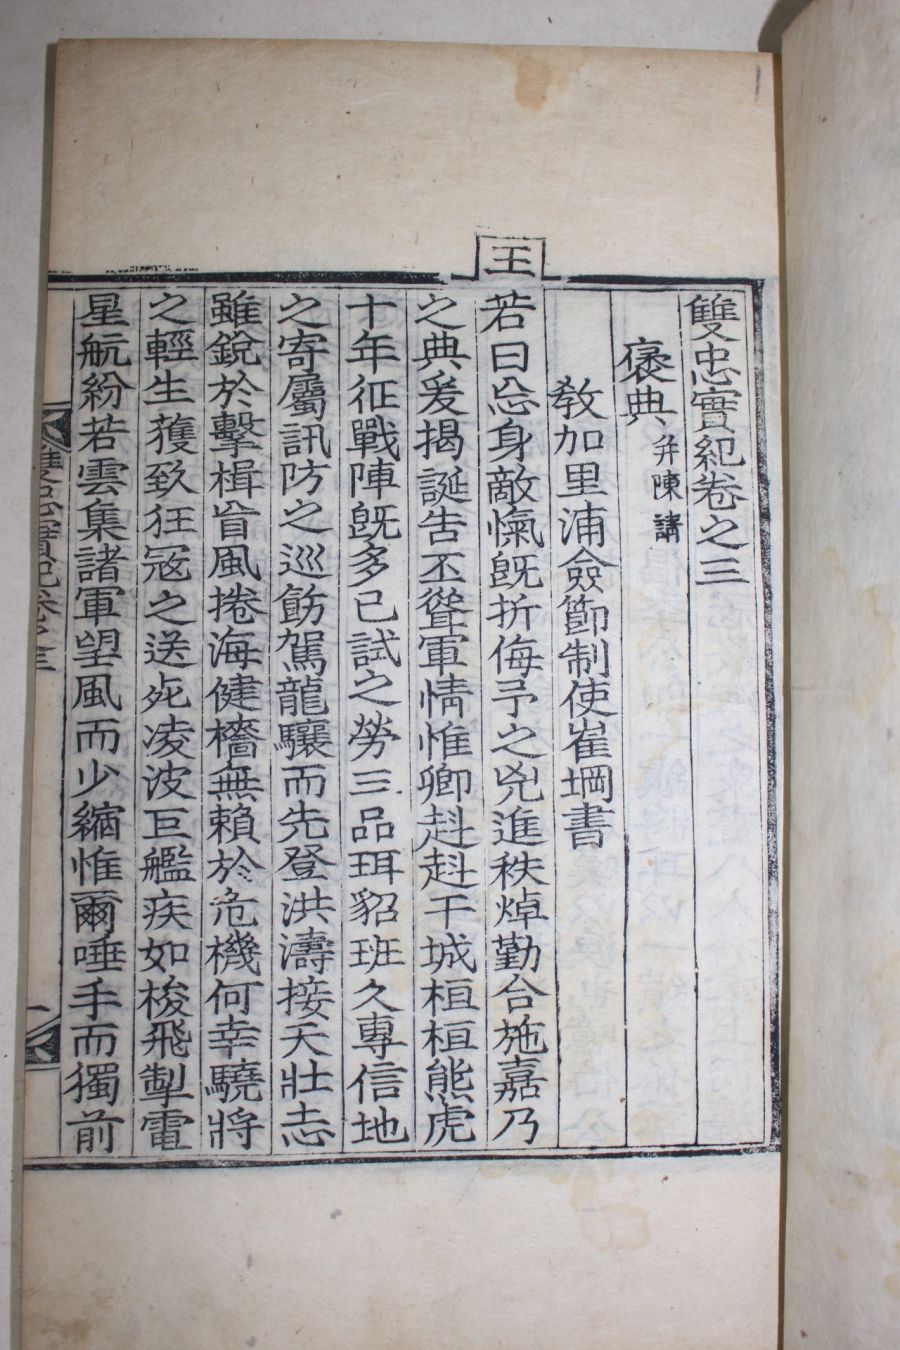 雙忠實紀卷之三
褒典 并陳請
敎加里浦僉節制使崔堈書
王
若曰忘身敵愾旣折侮予之兇進秩焯勤合施嘉乃
之典爰揭誕告丕聳軍情惟卿赳赳干城桓桓熊虎
十年征戰陣旣多已試之勞三品珥貂班久專信地
之寄屬訊防之巡飭駕龍驤而先登洪濤接天壯志
雖銳於擊楫盲風捲海健檣無賴於危機何幸驍將
之輕生獲致狂寇之送死凌波巨艦疾如梭飛掣電
星航紛若雲集諸軍望風而少縮惟爾唾手而獨前
雙忠實紀卷之三
一